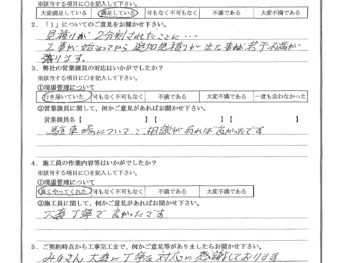 ※該当する項目に○を記入して下さい。
大変満足している 満足している 可もなく不可もなく 不満である 大変不満である
2. 「1」についてのご意見をお聞かせ下さい。
見積りが2分割されたことに…
工事が始まってから追加見積りが出た事は若干不満が
残ります。
3. 弊社の営業職員の対応はいかがでしたか?
※該当する項目に○を記入して下さい。
①現場管理について
行き届いていた 可もなく不可もなく 不満である 大変不満である 一度も会わなかった
②営業職員に関して、何かご意見があればお聞かせ下さい。
営業職員名【 】【 】【 】
駐車場についてご相談があれば良かったです
4. 施工員の作業内容等はいかがでしたか?
※該当する項目に○を記入して下さい。
①現場管理について
良くやってくれた 可もなく不可もなく 不満である 大変不満である
②施工員に関して、何かご意見があればお聞かせ下さい。
大変丁寧で良かったです
5. ご契約時点から工事完工まで、何かご意見等がありましたらお聞かせ下さい。
みなさん大変に丁寧な対応に感謝しております